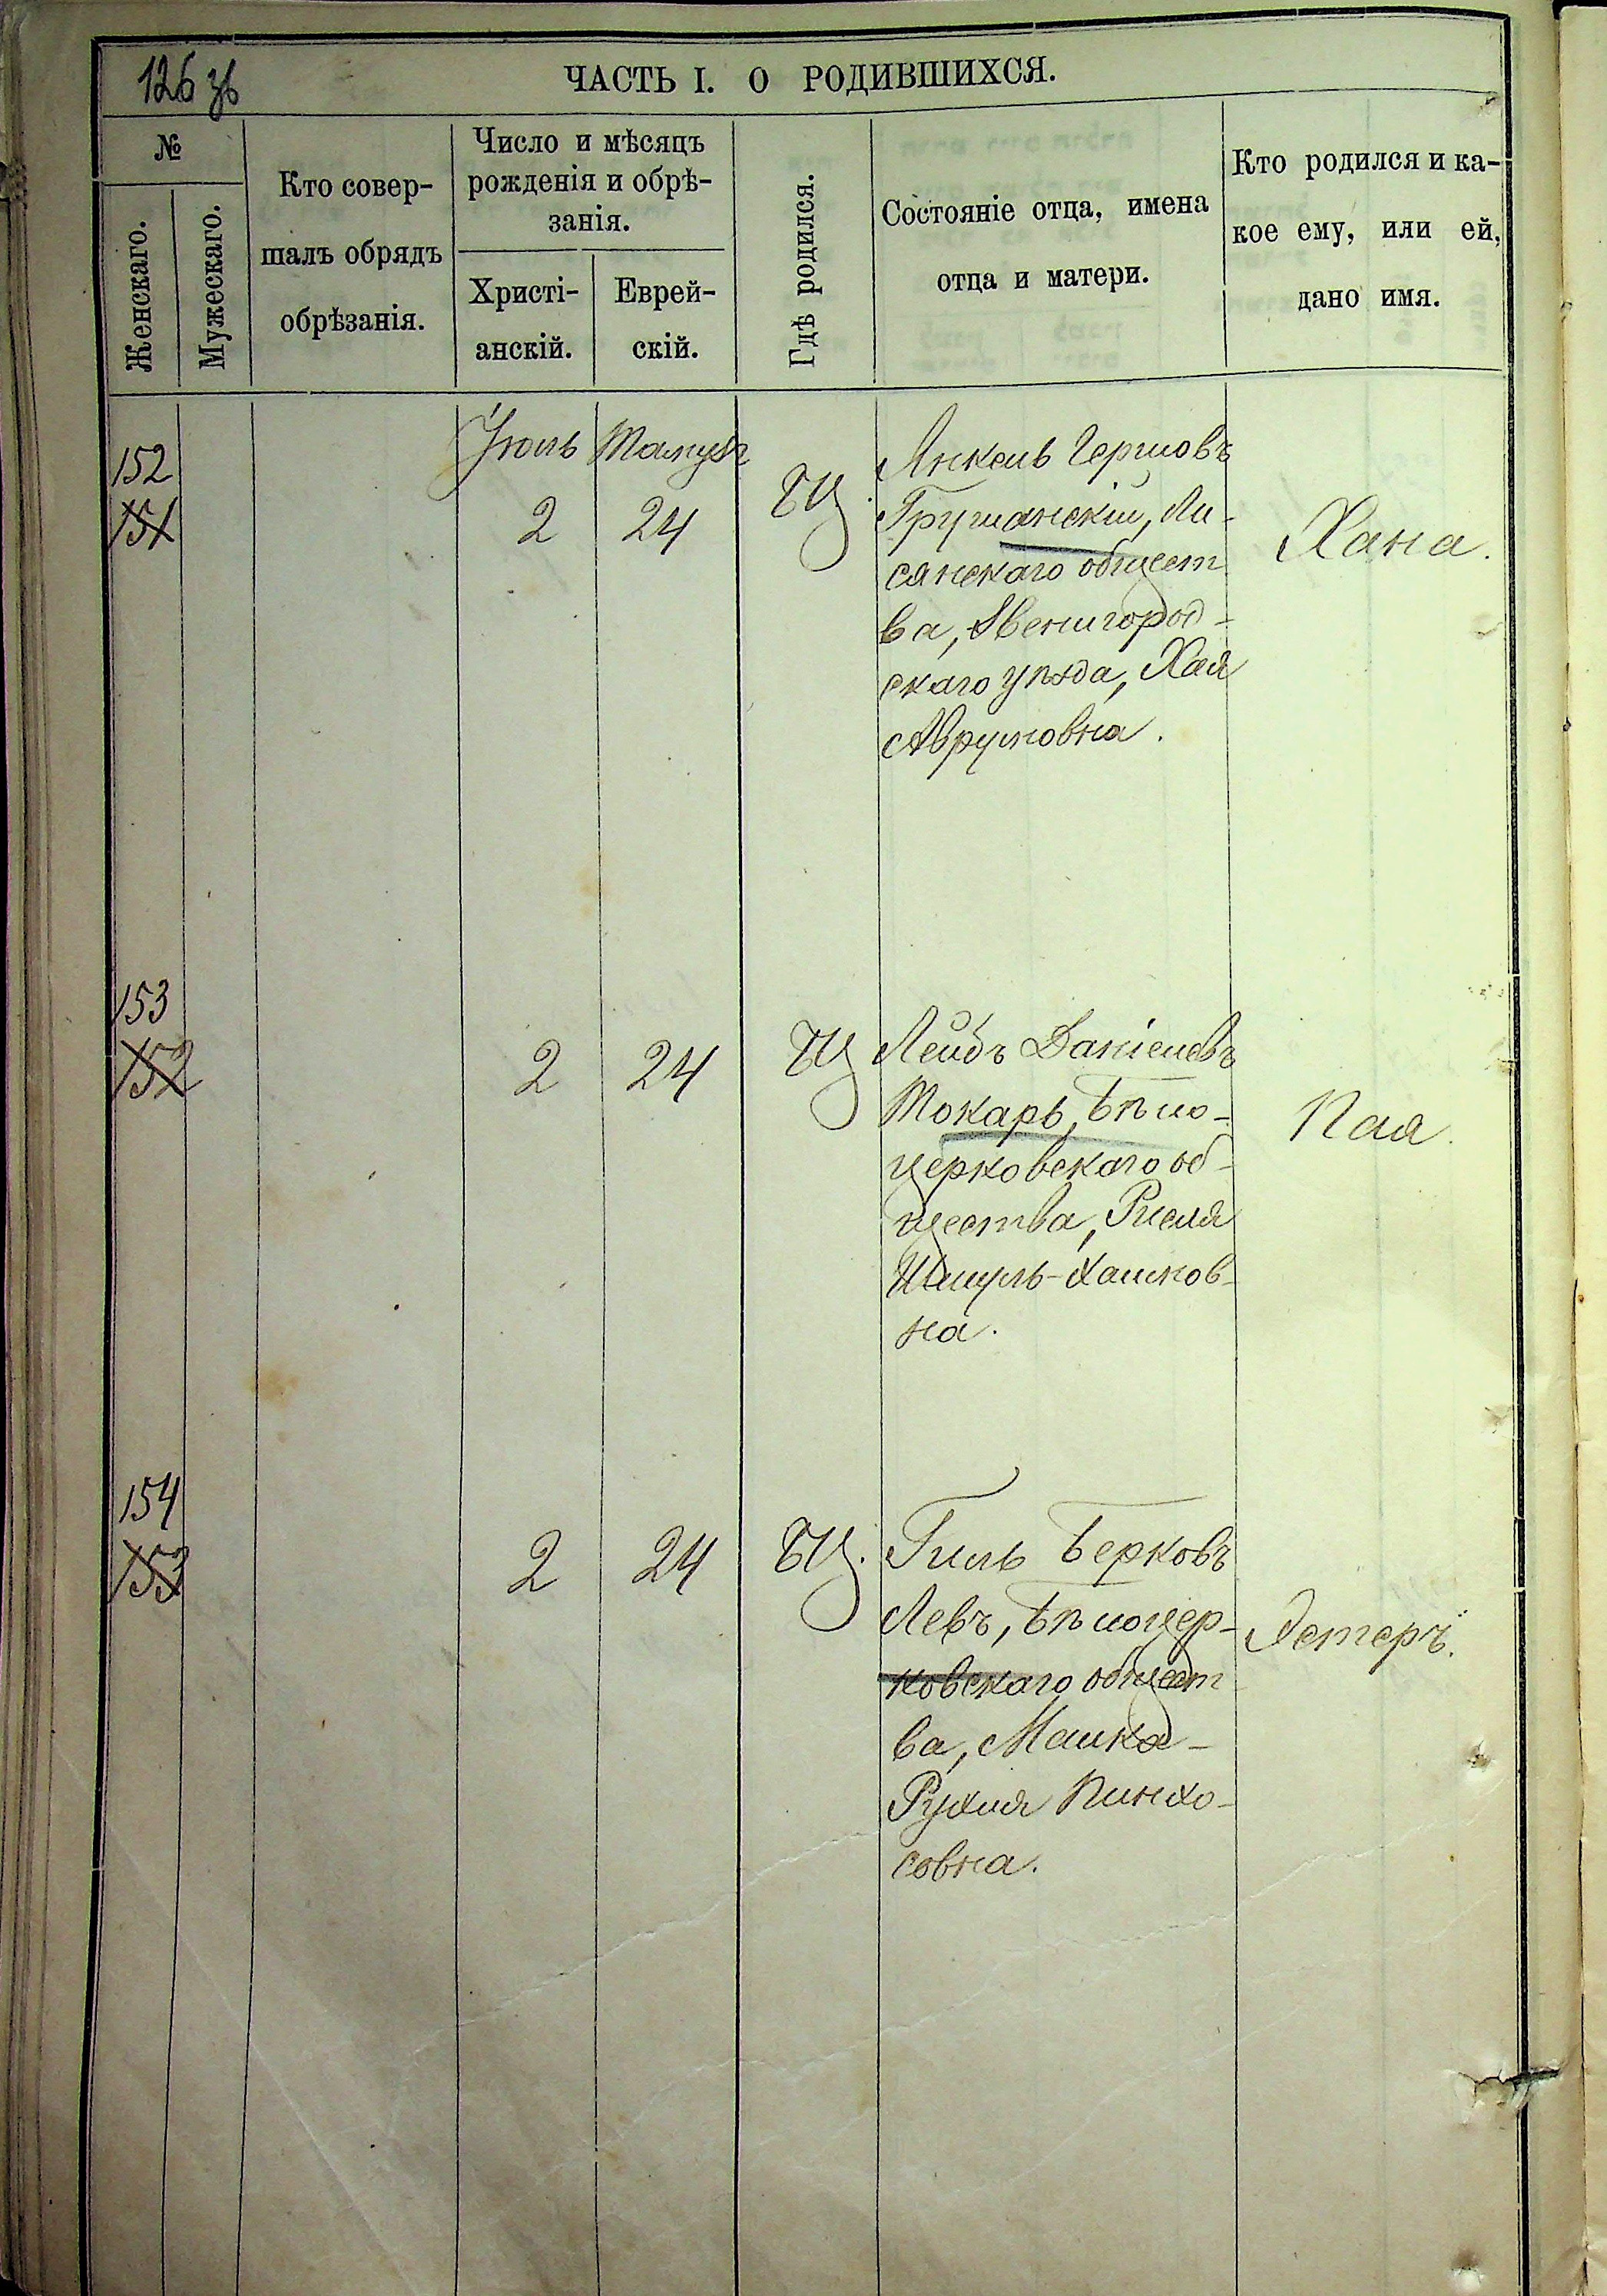 126 зв
ЧАСТЬ I. О РОДИВШИХСЯ.
№
Женскаго.
Мужескаго.
Кто совер-
шалъ обрядъ
обрѣзанія.
Число и мѣсяцъ
рожденія и обрѣ-
занія.
Христі-
анскій.
Еврей-
скій.
Гдѣ родился.
Состояніе отца, имена
отца и матери.
Кто родился и ка-
кое ему, или ей,
дано имя.
Іюль Тамузъ
152
151
2 24 БЦ.
Янкель Гершовъ
Грушанскій, Ли-
сянскаго общест
ва, Звенигород-
скаго уѣзда, Хая
Аврумовна.
Хана.
153
152
2 24 БЦ
Лейбъ Даніелевъ
Токарь, Бѣло-
церковскаго об-
щества, Рися
Шмуль-Хаимов-
на.
Пая.
154
153
2 24 БЦ.
Гиль Берковъ
Левъ, Бѣлоцер-
ковскаго общест
ва, Малка-
Рухля Пинхо-
совна.
Эстеръ.